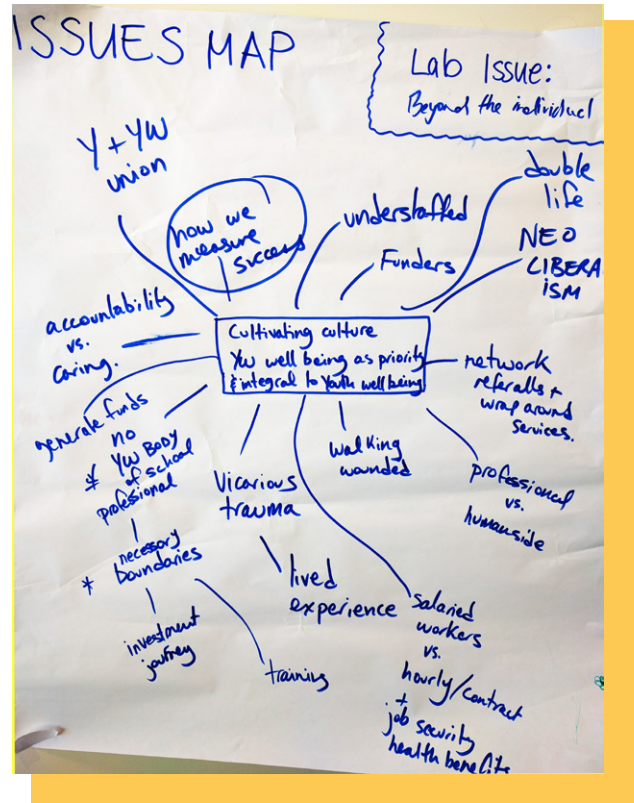 ISSUES MAP
Lab Issue:
Beyond the individual
Y + YW
union
how we
measure
success
understaffed
Funders
double
life
NEO
LIBERA
ISM
accountability
vs.
caring.
Cultivating culture
YW well being as priority
& integral to Youth well being
network
referalls +
wrap around
services.
generate funds
no
* YW BODY
of school
professional
Vicarious
trauma
walking
wounded
professional
vs.
humanside
* necessary
boundaries
lived
experience
investment
journey
training
Salaried
workers
vs.
hourly/contract
+
job security
health benefits